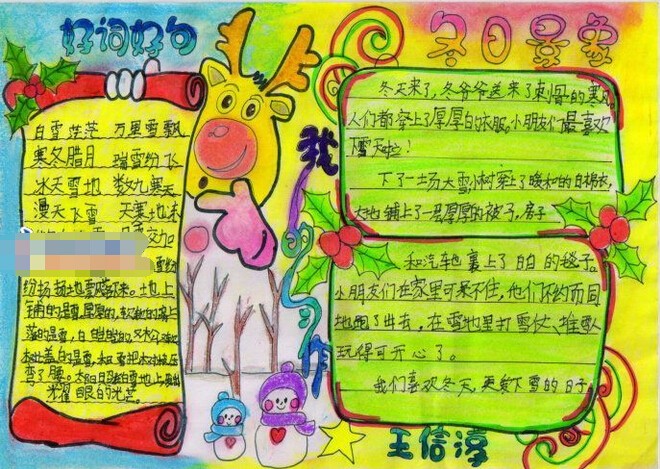 好词好句
白雪茫茫 万里雪飘
寒冬腊月 瑞雪纷飞
冰天雪地 数九寒天
漫天飞雪 天寒地冻
纷扬扬地飘落下来。地上
铺的是雪,厚厚的,软软的,房上
落的是雪,白皑皑的,
盖的是雪,
弯了腰。太阳
光耀眼的光芒
我的习作
冬日景象
冬天来了,冬爷爷送来了刺骨的寒风
人们都穿上了厚厚的衣服。小朋友们最喜欢
下雪天啦!
下了一场大雪,小树穿上了暖和的白棉衣,
大地铺上了一层厚厚的被子,房子
和汽车也裹上了白白的毯子。
小朋友们在家里可呆不住,他们不约而同
地跑了出去,在雪地里打雪仗、堆雪人
玩得可开心了。
我们喜欢冬天,更爱下雪的日子
王信淳